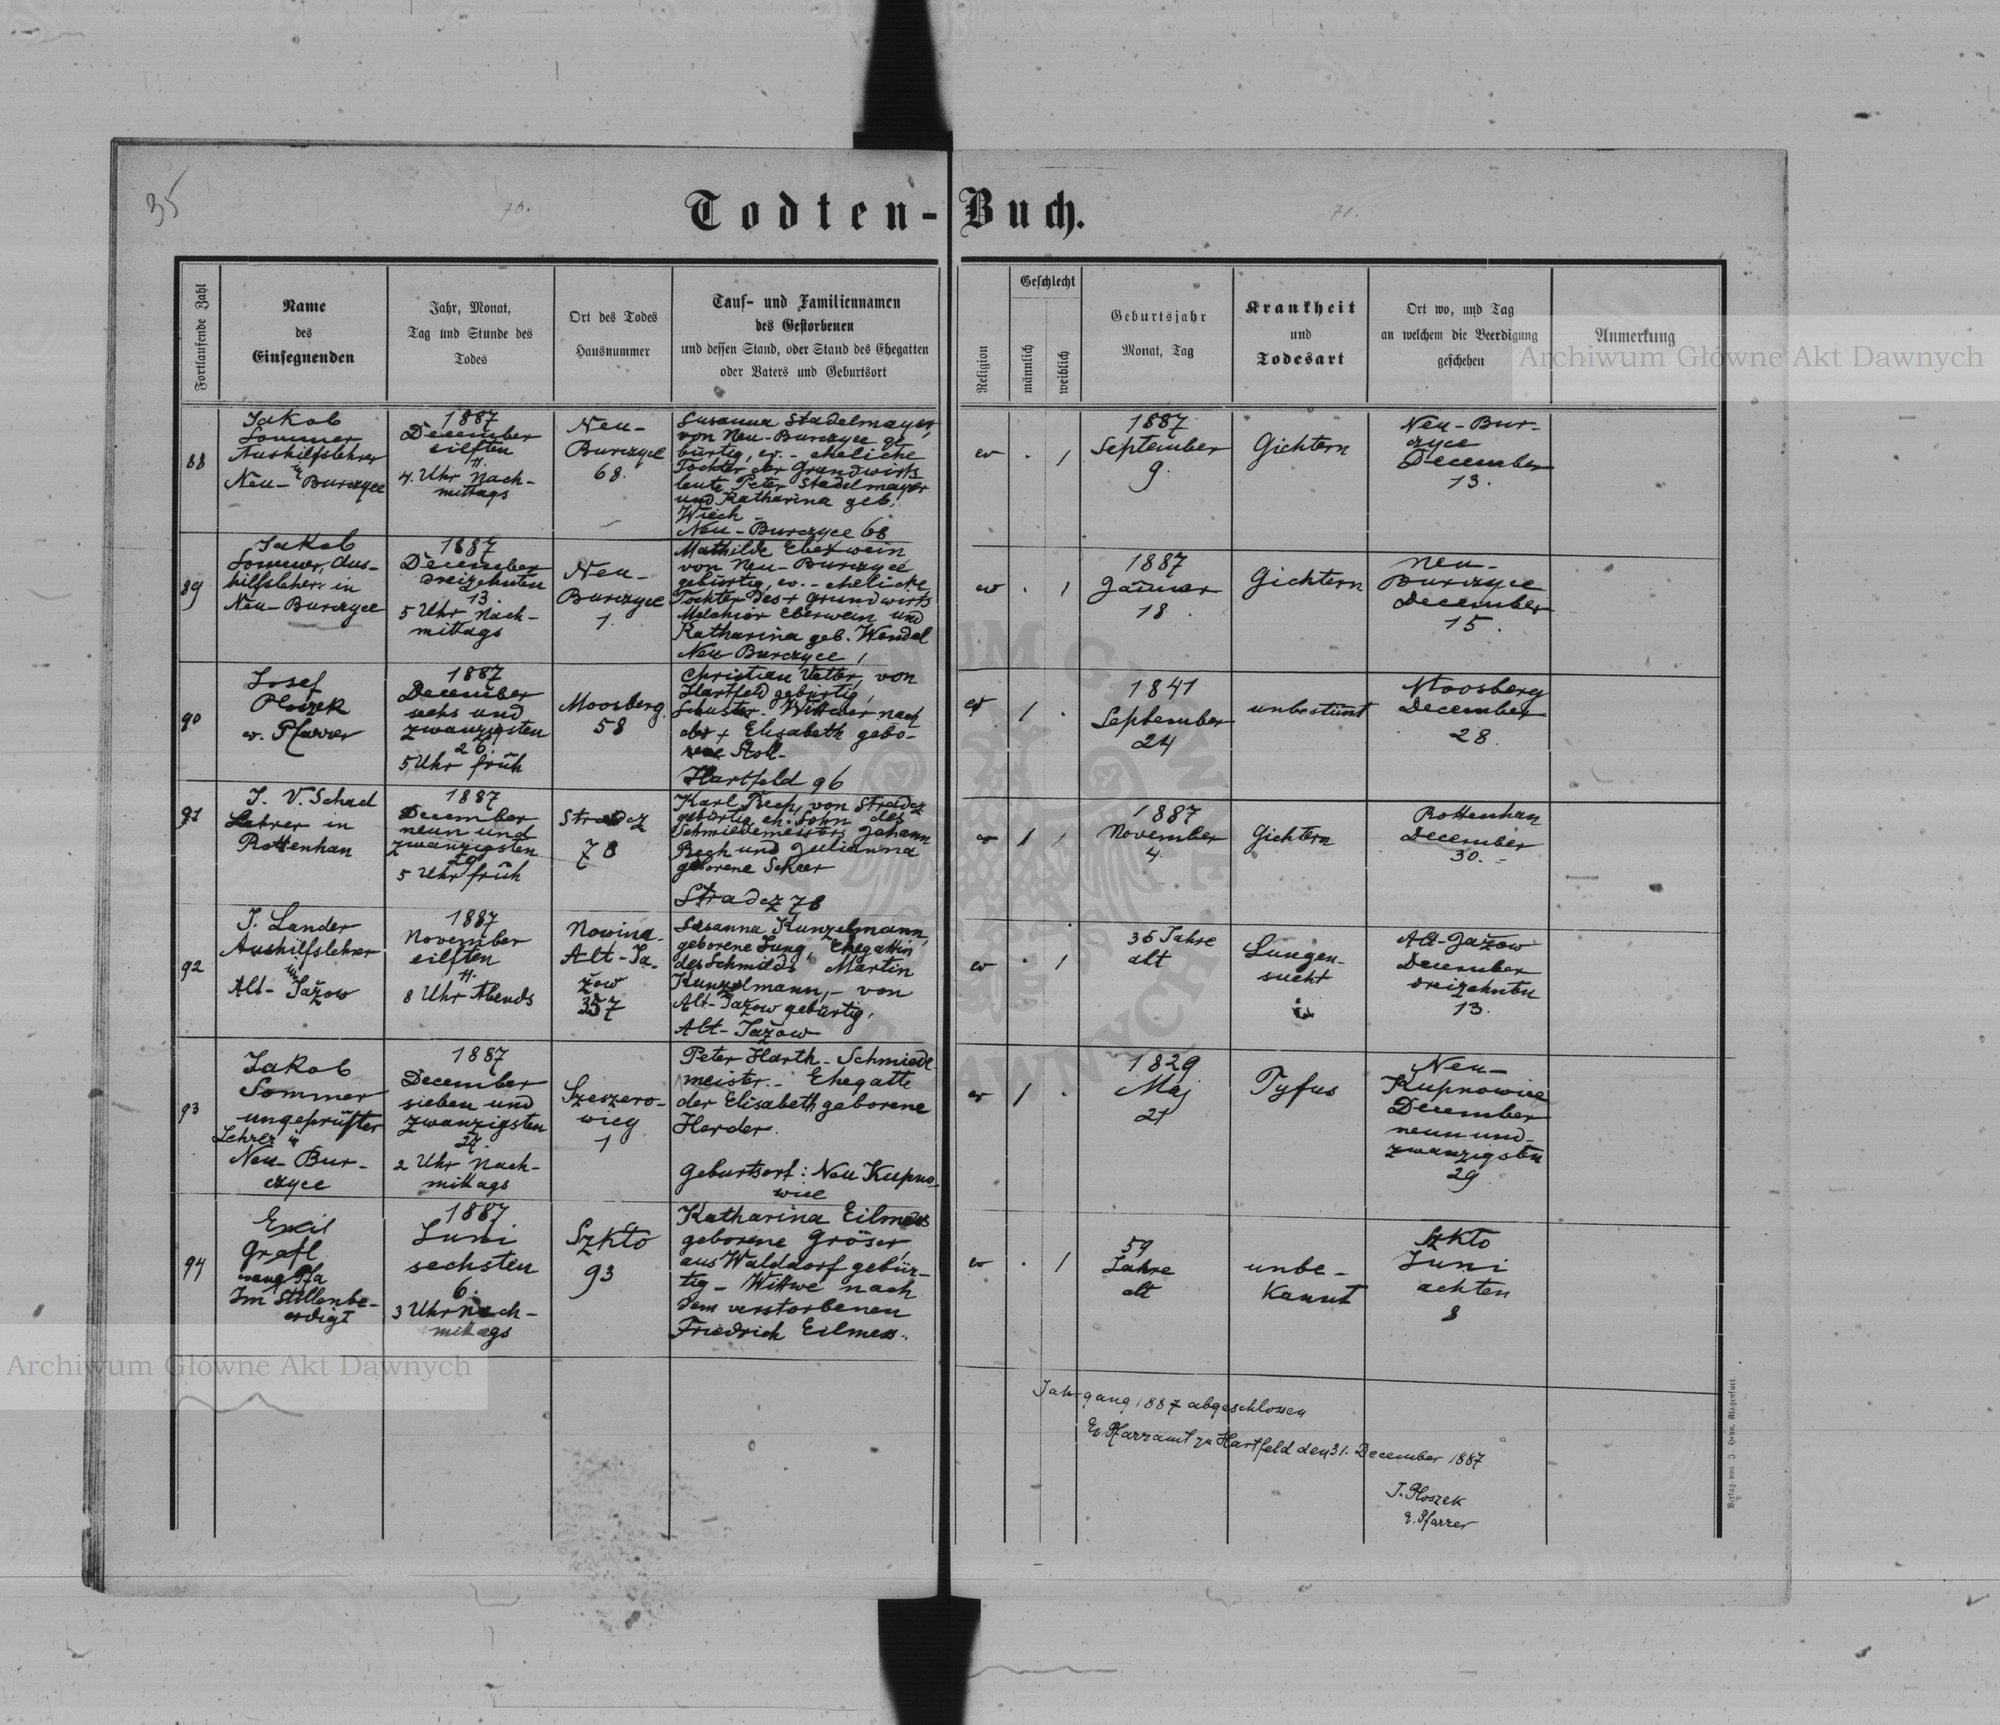 35
70.
71.
Todten-Buch.
Fortlaufende Zahl
Name
des
Einsegnenden
Jahr, Monat,
Tag und Stunde des
Todes
Ort des Todes
Hausnummer
Tauf- und Familiennamen
des Gestorbenen
und dessen Stand, oder Stand des Ehegatten
oder Vaters und Geburtsort
Religion
Geschlecht
männlich
weiblich
Geburtsjahr
Monat, Tag
Krankheit
und
Todesart
Ort wo, und Tag
an welchem die Beerdigung
geschehen
Anmerkung
88
Jakob
Sommer
Aushilfslehrer
in
Neu-Burczyce
1887
December
eilften
11.
4 Uhr Nach-
mittags
Neu-
Burczyce
68.
Susanna Stadelmayer,
von Neu-Burczyce ge
bürtig, ev. - eheliche
Tochter der Grundwirts
leute Peter Stadelmayer
und Katharina geb.
Wiech
Neu-Burczyce 68
ev . 1
1887
September
9.
Gichtern
Neu-Bur-
czyce
December
13.
89
Jakob
Sommer, Aus-
hilfslehrer in
Neu-Burczyce
1887
December
dreizehnten
13.
5 Uhr Nach-
mittags
Neu-
Burczyce
1.
Mathilde Eberwein
von Neu-Burczyce
gebürtig, ev. - eheliche
Tochter des + Grundwirts
Melchior Eberwein und
Katharina geb. Wendel
Neu Burczyce 1
ev . 1
1887
Jänner
18
Gichtern
Neu-
Burczyce
December
15.
90
Josef
Ploszek
ev. Pfarrer
1887
December
sechs und
zwanzigsten
26.
5 Uhr früh
Moosberg
58
Christian Vetter, von
Hartfeld gebürtig,
Schuster. Wittwer nach
der + Elisabeth gebo-
rene Stoll-
Hartfeld 96
ev 1 .
1841
September
24
unbestimt
Moosberg
December
28.
91
J. V. Schad
Lehrer in
Rottenhan
1887
December
neun und
zwanzigsten
29
5 Uhr früh
Stradcz
78
Karl Rech, von Stradcz
gebürtig eh. Sohn des
Schmiedemeisters Johann
Rech und Julianna
geborene Scheer
Stradcz 78
ev 1
1887
November
4.
Gichtern
Rottenhan
December
30.-
92
J. Lander
Aushilfslehrer
in
Alt-Jažow
1887
November
eilften
11.
8 Uhr Abends
Nowina-
Alt-Ja-
žow
357
Susanna Kunzelmann,
geborene Jung, Ehegattin
des Schmieds Martin
Kunzelmann,- von
Alt-Jažow gebürtig,
Alt-Jažow
ev . 1
36 Jahre
alt
Lungen-
sucht
Alt-Jažow
December
dreizehnten
13.
93
Jakob
Sommer
ungeprüfter
Lehrer in
Neu-Bur-
czyce
1887
December
sieben und
zwanzigsten
27.
2 Uhr Nach-
mittags
Szeszero-
wicy
1
Peter Harth - Schmiede
meister. - Ehegatte
der Elisabeth geborene
Herder.
Geburtsort: Neu Kupno-
wice
ev 1 .
1829
Maj
21
Tyfus
Neu-
Kupnowice
December
neun und-
zwanzigsten
29
94
Emil
Grafl
evang Pfa
Im Stillen be-
erdigt
1887
Juni
sechsten
6.
3 Uhr nach-
mittags
Szkto
93
Katharina Eilmess
geborene Gröser,
aus Walddorf gebür-
tig - Wittwe nach
dem verstorbenen
Friedrich Eilmess.
ev . 1
59
Jahre
alt
unbe-
kannt
Szkto
Juni
achten
8
Jahrgang 1887 abgeschlossen
Ev Pfarramt zu Hartfeld den 31. December 1887
J. Ploszek
e. Pfarrer
Verlag von J. Heyn, Klagenfurt.
Archiwum Główne Akt Dawnych
Archiwum Główne Akt Dawnych